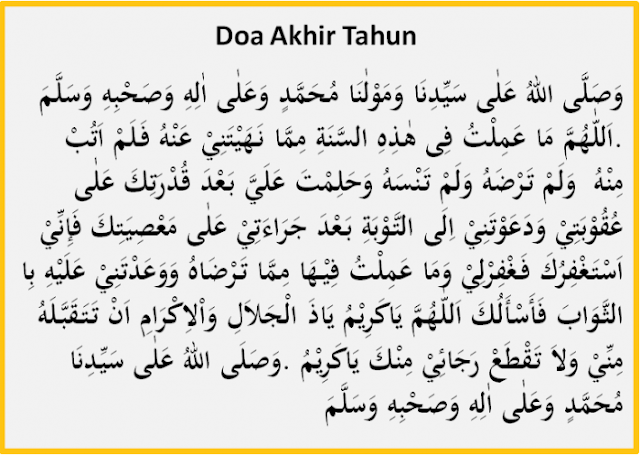 Doa Akhir Tahun
وَصَلَّى اللهُ عَلٰى سَيِّدِنَا وَمَوْلٰنَا مُحَمَّدٍ وَعَلٰى اٰلِهِ وَصَحْبِهِ وَسَلَّمَ
.اَللّٰهُمَّ مَا عَمِلْتُ فِى هٰذِهِ السَّنَةِ مِمَّا نَهَيْتَنِيْ عَنْهُ فَلَمْ اَتُبْ
مِنْهُ وَلَمْ تَرْضَهُ وَلَمْ تَنْسَهُ وَحَلِمْتَ عَلَيَّ بَعْدَ قُدْرَتِكَ عَلٰى
عُقُوْبَتِيْ وَدَعَوْتَنِيْ اِلَى التَّوْبَةِ بَعْدَ جَرَاءَتِيْ عَلٰى مَعْصِيَتِكَ فَإِنِّيْ
اَسْتَغْفِرُكَ فَغْفِرْلِيْ وَمَا عَمِلْتُ فِيْهَا مِمَّا تَرْضَاهُ وَوَعَدْتَنِيْ عَلَيْهِ بِا
الثَّوَابَ فَأَسْأَلُكَ اَللّٰهُمَّ يَاكَرِيْمُ يَاذَ الْجَلاَلِ وَاْلاِكْرَامِ اَنْ تَتَقَبَّلَهُ
مِنِّيْ وَلاَ تَقْطَعْ رَجَائِيْ مِنْكَ يَاكَرِيْمُ .وَصَلَى اللهُ عَلٰى سَيِّدِنَا
مُحَمَّدٍ وَعَلٰى اٰلِهِ وَصَحْبِهِ وَسَلَّمَ